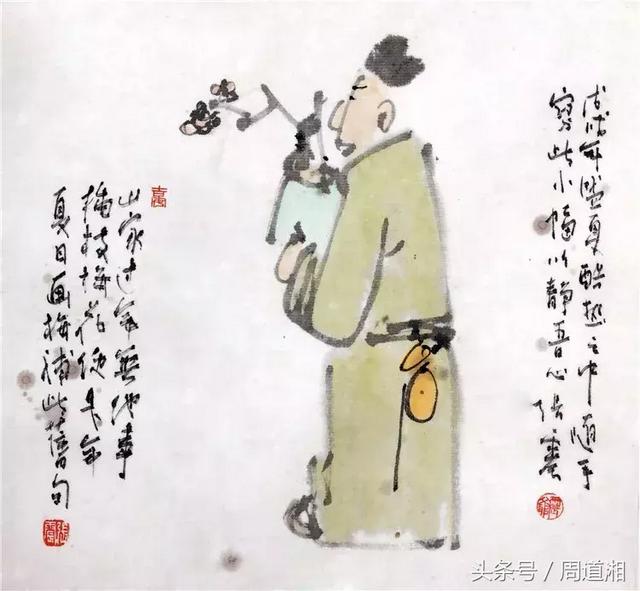 戊戌年盛夏酷热之中随手
寫此小幅以静吾心 张震
山家过年無他事
插枝梅花便年
夏日画梅補此舊句
头条号/周道相